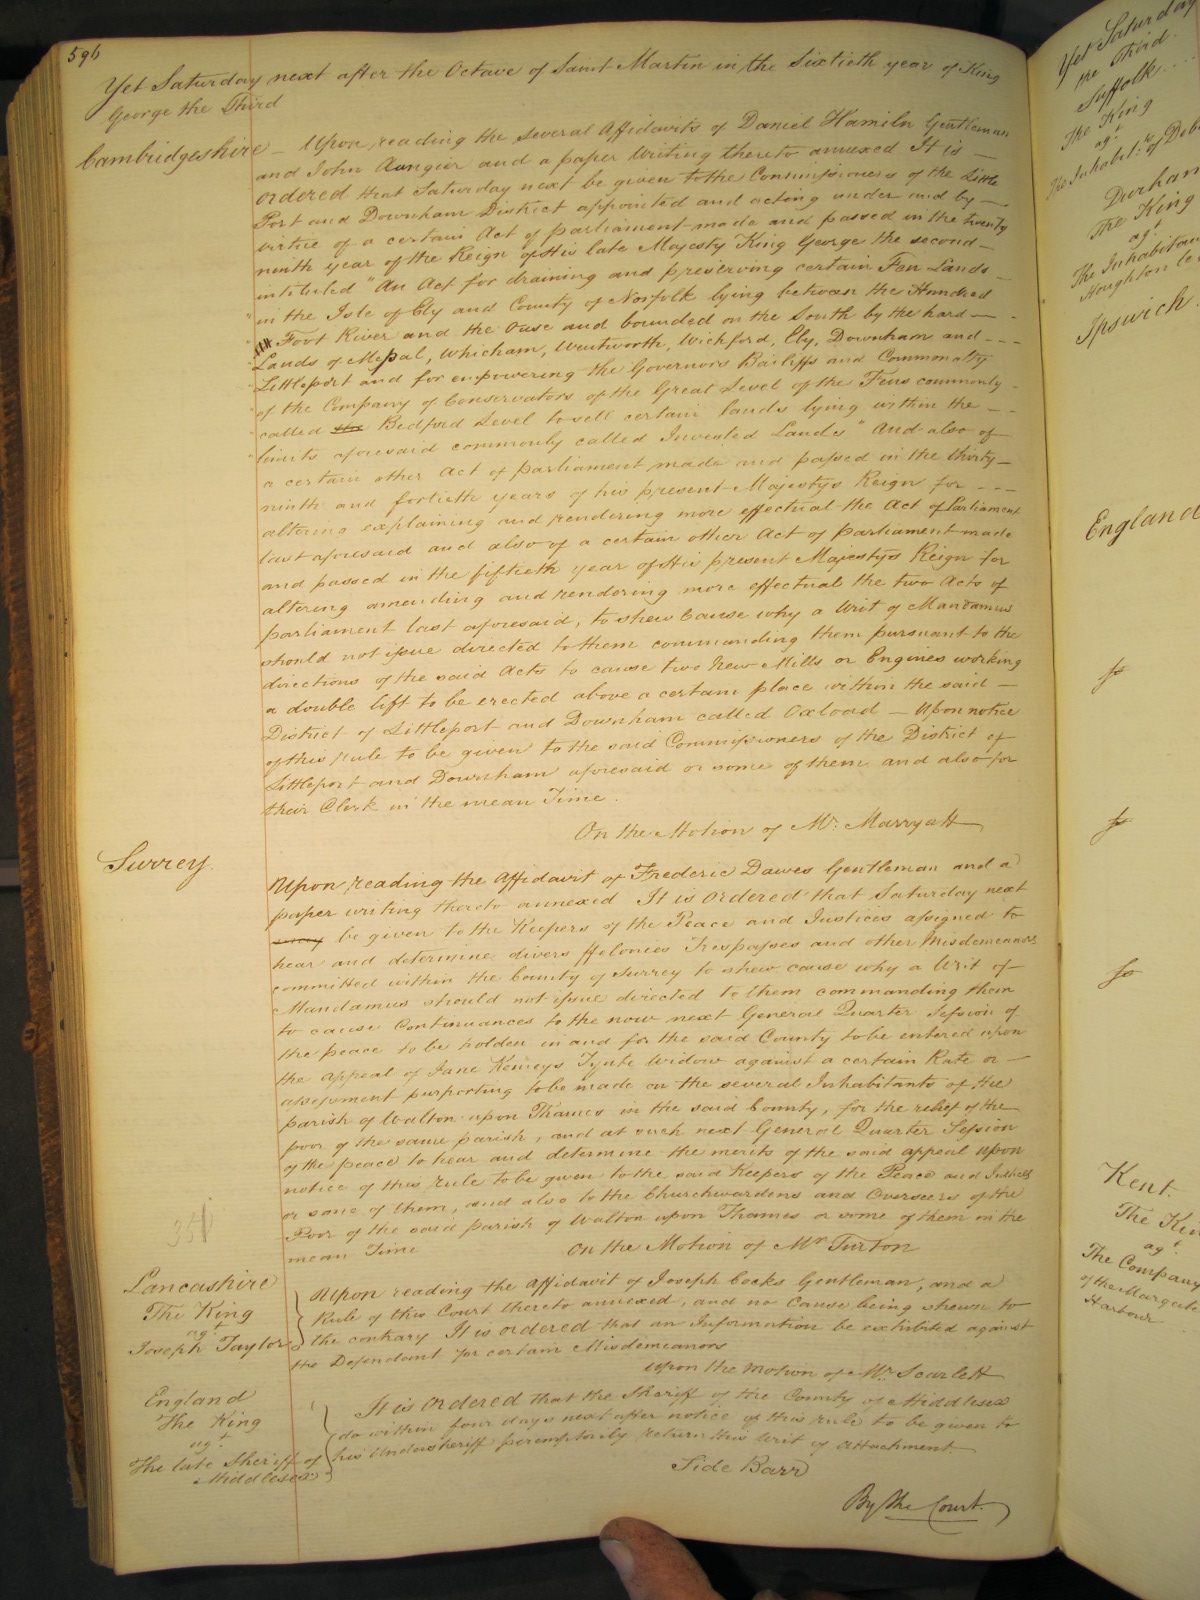 596
Yet Saturday next after the Octave of Saint Martin in the Sixtieth year of King
George the Third
Cambridgeshire – Upon reading the several Affidavits of Daniel Hamiln Gentleman
and John Aungier and a paper Writing thereto annexed It is –
Ordered that Saturday next be given to the Commissioners of the Little
Port and Downham District appointed and acting under and by –
virtue of a certain Act of parliament made and passed in the twenty
ninth year of the Reign of His late Majesty King George the second –
intituled "An Act for draining and preserving certain Fen Lands –
"in the Isle of Ely and County of Norfolk lying between the Hundred
Foot River and the Ouse and bounded on the South by the hard –
Lands of Mepal, Whicham, Wentworth, Wichford, Ely, Downham and –
"Littleport and for empowering the Governors Bailiffs and Commonalty
"of the Company of Conservators of the Great Level of the Fens commonly
"called the Bedford Level to sell certain lands lying within the –
"limits aforesaid commonly called Invested Lands" And also of
a certain other Act of parliament made and passed in the thirty –
ninth and fortieth years of his present Majestys Reign for –
altering explaining and rendering more effectual the Act of Parliament
last aforesaid and also of a certain other Act of parliament made
and passed in the fiftieth year of His present Majestys Reign for
altering amending and rendering more effectual the two Acts of
parliament last aforesaid, to shew Cause why a Writ of Mandamus
should not issue directed to them commanding them pursuant to the
directions of the said Acts to cause two New Mills or Engines working
a double lift to be erected above a certain place within the said –
District of Littleport and Downham called Oxload – Upon notice
of this rule to be given to the said Commissioners of the District of
Littleport and Downham aforesaid or some of them and also for
their Clerk in the mean Time.
On the Motion of Mr. Marryatt
Surrey.
Upon reading the Affidavit of Frederic Dawes Gentleman and a
paper writing thereto annexed It is Ordered that Saturday next
be given to the Keepers of the Peace and Justices assigned to
hear and determine divers ffelonies Trespasses and other Misdemeanors
committed within the County of Surrey to shew cause why a Writ of
Mandamus should not issue directed to them commanding them
to cause Continuances to the now next General Quarter Session of
the peace to be holden in and for the said County to be entered upon
the appeal of Jane Kemeys Tynte Widow against a certain Rate or –
assessment purporting to be made on the several Inhabitants of the
parish of Walton upon Thames in the said County, for the relief of the
poor of the same parish, and at such next General Quarter Session
of the peace to hear and determine the merits of the said appeal upon
notice of this rule to be given to the said Keepers of the Peace and Justices
or some of them, and also to the Churchwardens and Overseers of the
Poor of the said parish of Walton upon Thames or some of them in the
mean Time
On the Motion of Mr Turton
Lancashire
The King
agt
Joseph Taylor
Upon reading the Affidavit of Joseph Cocks Gentleman, and a
Rule of this Court thereto annexed, and no Cause being shewn to
the contrary It is ordered that an Information be exhibited against
the Defendant for certain Misdemeanors
Upon the Motion of Mr. Scarlett
England
The King
agt
The late Sheriff of
Middlesex
It is Ordered that the Sheriff of the County of Middlesex
do within four days next after notice of this rule to be given to
his Undersheriff peremptorily return this Writ of Attachment
Side Barr
By the Court.
Yet Saturday
the Third
Suffolk
The King
agt
The Inhabit:ts of Deb
Durham
The King
agt
The Inhabitan
Houghton le
Ipswich
England
Kent.
The Kin
agt
The Company
of the Margate
Harbour